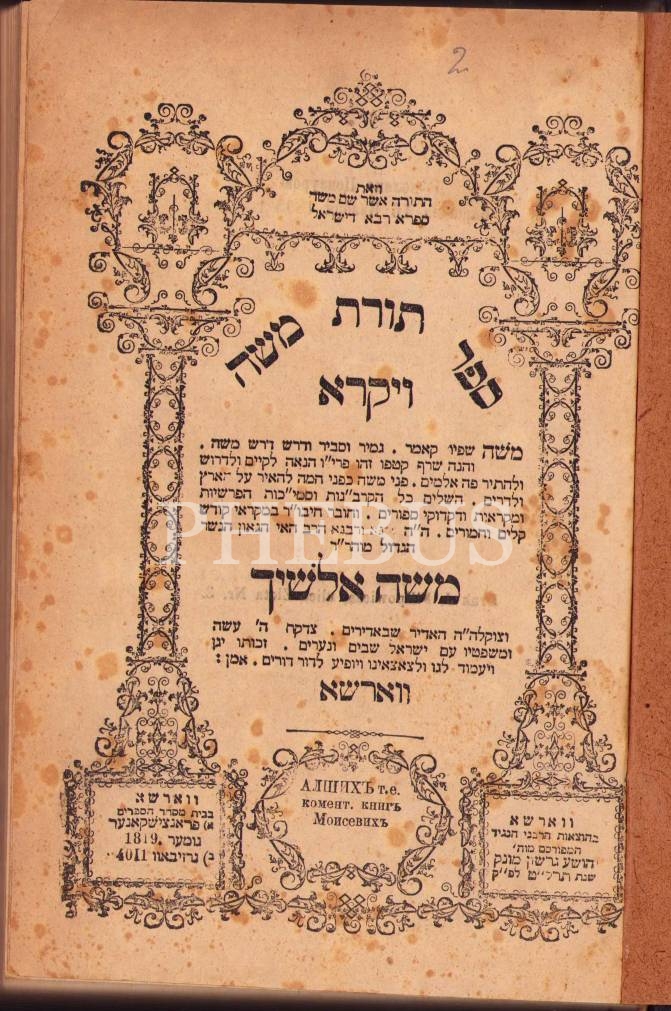 2
וזאת
התורה אשר שם משה
ספרא רבא דישראל
ספר תורת משה
ויקרא
משה שפיר קאמר . גמיר וסביר ודרש דרש משה .
והנה שרף קטפו זהו פרי״ו הנאה לקיים ולדרוש
ולהתיר פה אלמים . פני משה כפני חמה להאיר על הארץ
ולדרים . השלים כל הקרב״נות וסמי״כות הפרשיות
ומקראית ודקדוקי ספורים . וחובר חיבו״ר במקראי קודש
קלים וחמורים . ה״ה ורבנא הרב האי הגאון הנשר
הגדול מוהר״ר
משה אלשיך
זצוקלה״ה האדיר שבאדירים . צדקת ה' עשה
ומשפטיו עם ישראל שבים ונערים . זכותו יגן
ויעמוד לנו ולצאצאינו ויופיע לדור דורים . אמן :
ווארשא
ווארשא
בבית מסחר הספרים
א) פראנצישקאנער
נומער 1819.
ב) גרזיבאוו 1104
АЛШИХЪ т.е.
комент. книгъ
Моисевихъ
ווארשא
בהוצאות הרבני הנגיד
המפורסם מוה'
הושע גרשון מונק
שנת תרל״ט לפ״ק
PHEBUS